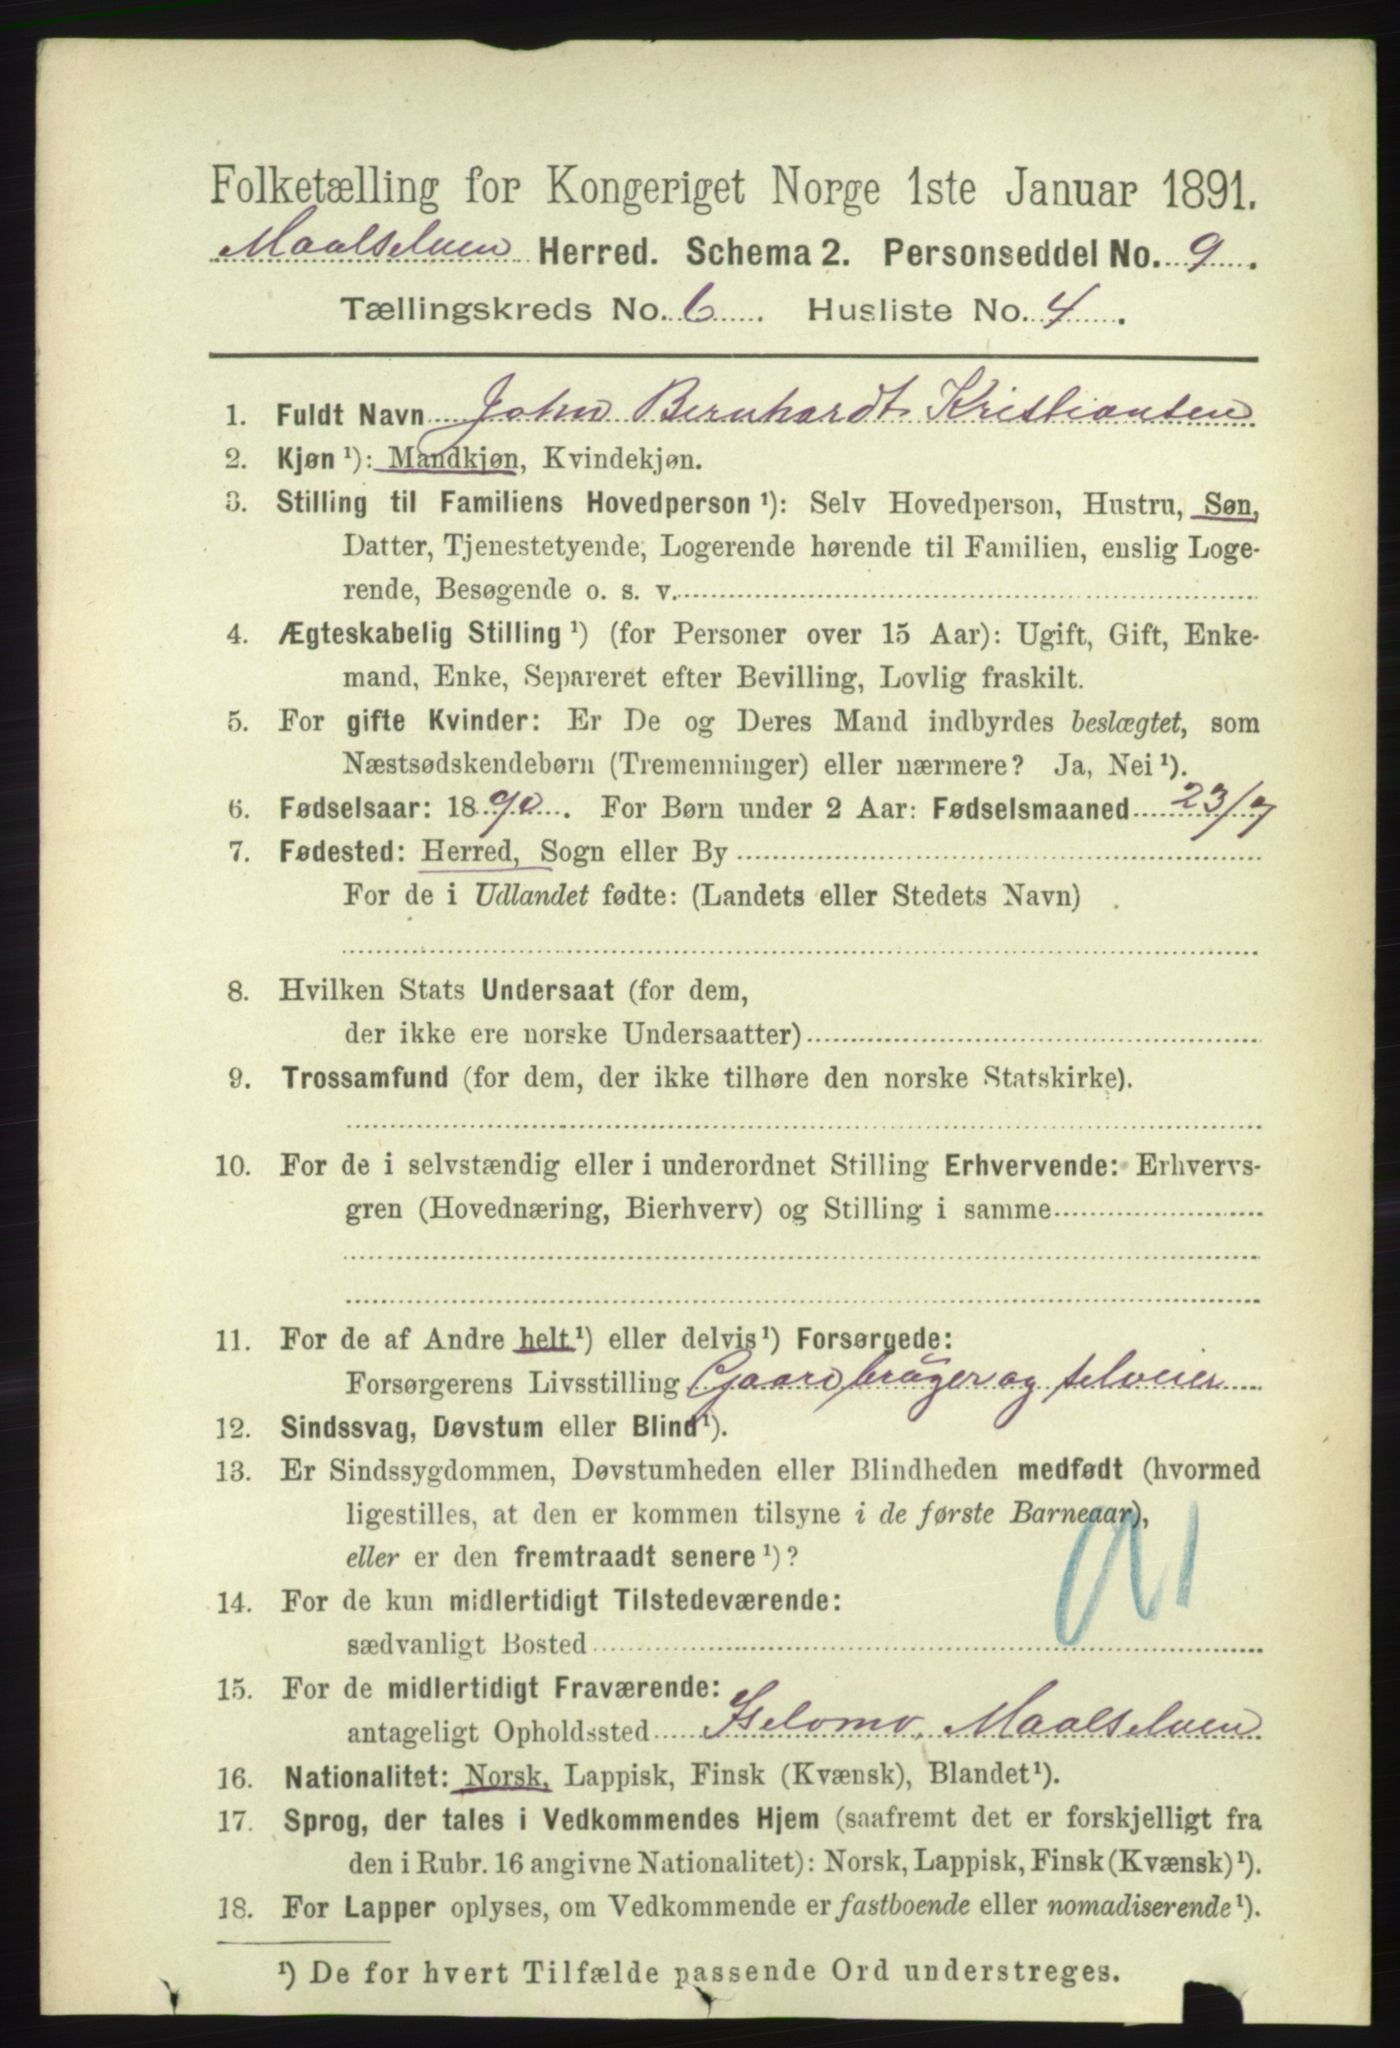 Folketælling for Kongeriget Norge 1ste Januar 1891.
Maalselven Herred. Schema 2. Personseddel No. 9.
Tællingskreds No. 6. Husliste No. 4.
1. Fuldt Navn John Bernhardt Kristiansen
2. Kjøn ¹): Mandkjøn, Kvindekjøn.
3. Stilling til Familiens Hovedperson ¹): Selv Hovedperson, Hustru, Søn,
Datter, Tjenestetyende, Logerende hørende til Familien, enslig Loge-
rende, Besøgende o. s. v.
4. Ægteskabelig Stilling ¹) (for Personer over 15 Aar): Ugift, Gift, Enke-
mand, Enke, Separeret efter Bevilling, Lovlig fraskilt.
5. For gifte Kvinder: Er De og Deres Mand indbyrdes beslægtet, som
Næstsødskendebørn (Tremenninger) eller nærmere? Ja, Nei ¹).
6. Fødselsaar: 1890. For Børn under 2 Aar: Fødselsmaaned 23/7
7. Fødested: Herred, Sogn eller By
For de i Udlandet fødte: (Landets eller Stedets Navn)
8. Hvilken Stats Undersaat (for dem,
der ikke ere norske Undersaatter)
9. Trossamfund (for dem, der ikke tilhøre den norske Statskirke).
10. For de i selvstændig eller i underordnet Stilling Erhvervende: Erhvervs-
gren (Hovednæring, Bierhverv) og Stilling i samme
11. For de af Andre helt ¹) eller delvis ¹) Forsørgede:
Forsørgerens Livsstilling Gaardbrüger og selveier
12. Sindssvag, Døvstum eller Blind ¹).
13. Er Sindssygdommen, Døvstumheden eller Blindheden medfødt (hvormed
ligestilles, at den er kommen tilsyne i de første Barneaar),
eller er den fremtraadt senere ¹)?
14. For de kun midlertidigt Tilstedeværende:
sædvanligt Bosted
15. For de midlertidigt Fraværende:
antageligt Opholdssted Iselvmo, Maalselven
16. Nationalitet: Norsk, Lappisk, Finsk (Kvænsk), Blandet ¹).
17. Sprog, der tales i Vedkommendes Hjem (saafremt det er forskjelligt fra
den i Rubr. 16 angivne Nationalitet): Norsk, Lappisk, Finsk (Kvænsk) ¹).
18. For Lapper oplyses, om Vedkommende er fastboende eller nomadiserende ¹).
¹) De for hvert Tilfælde passende Ord understreges.